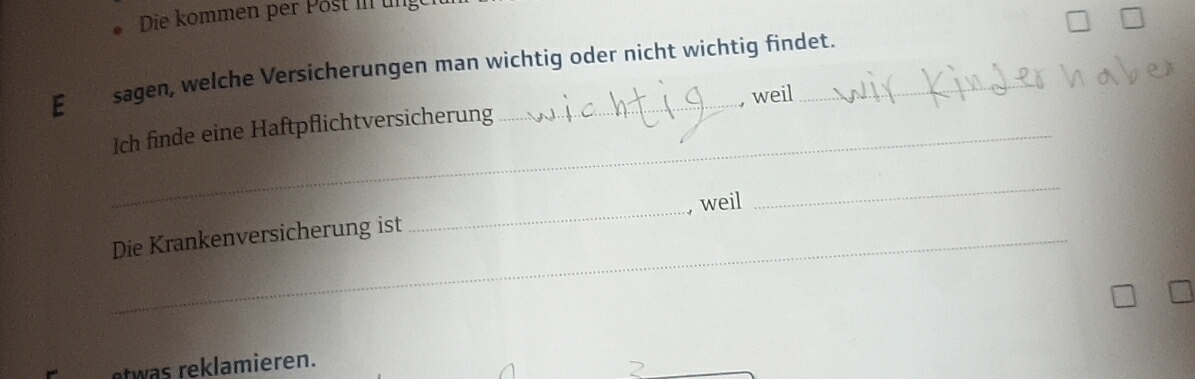 • Die kommen per Post in
E sagen, welche Versicherungen man wichtig oder nicht wichtig findet.
Ich finde eine Haftpflichtversicherung wichtig, weil wir Kinder haben
Die Krankenversicherung ist , weil
etwas reklamieren.